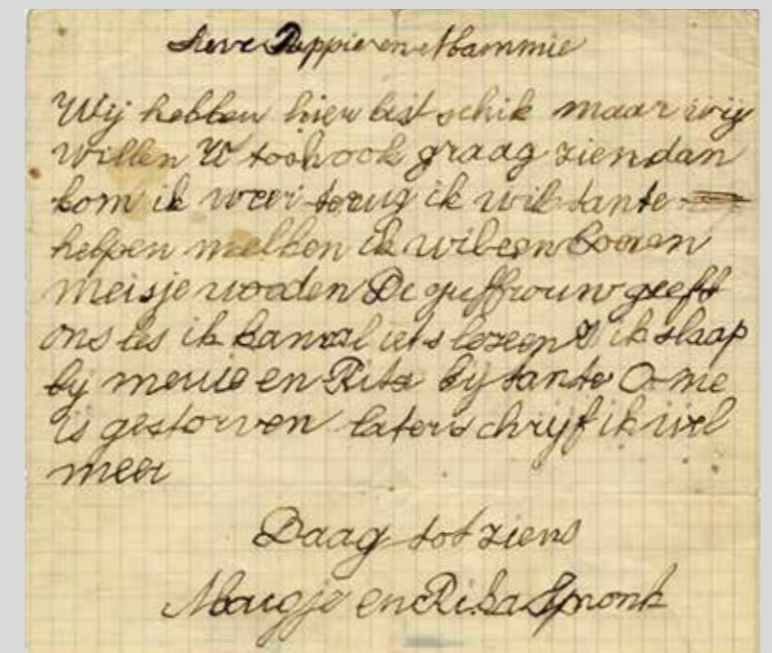 Lieve Pappie en Mammie
Wij hebben hier best schik maar wij
willen U toch ook graag zien dan
kom ik weer terug ik wil tante
helpen melken ik wil een boeren
meisje worden De juffrouw geeft
ons les ik kan al iets lezen ik slaap
by en Rita by tante Oome
is gestorven later schryf ik wel
meer
Daag tot ziens
en Rita